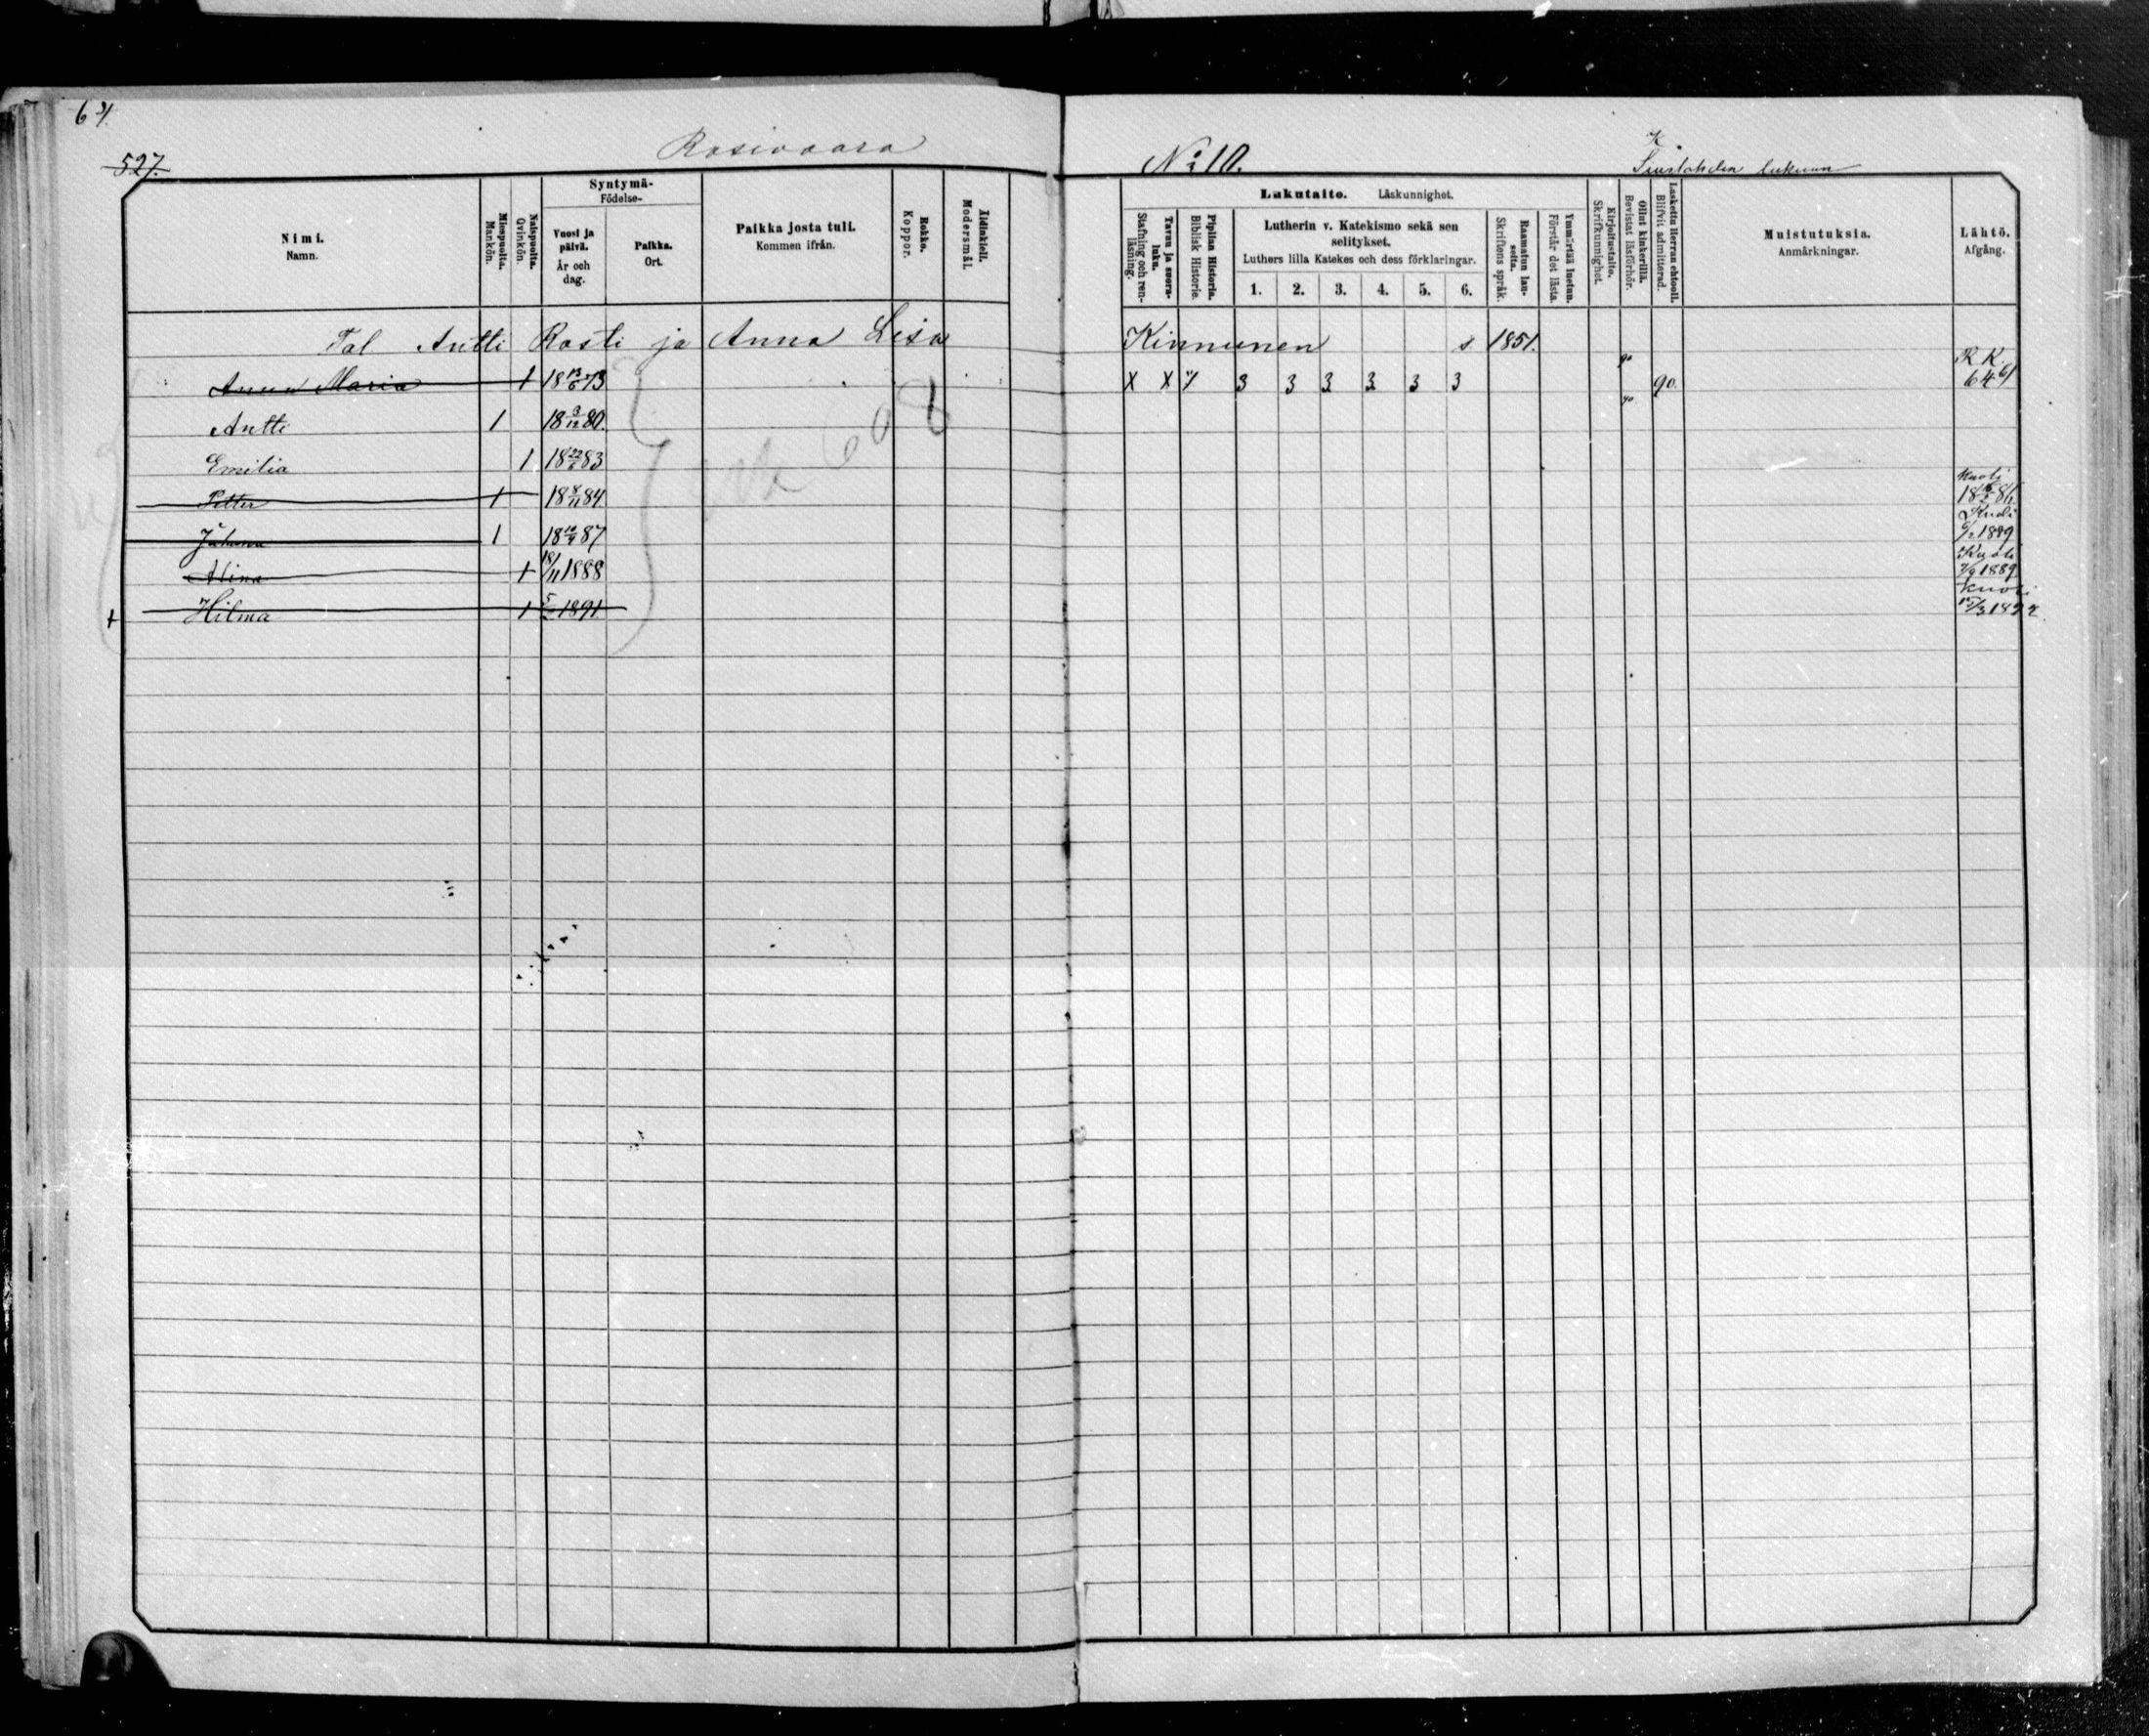 64
527.
Rasivaara
No 10.
K.
lukuun
Nimi.
Namn.
Miespuolta.
Mankön.
Naispuolta.
Qvinkön.
Syntymä-
Födelse-
Vuosi ja päivä.
År och dag.
Paikka.
Ort.
Paikka josta tuli.
Kommen ifrån.
Rokko.
Koppor.
Äidinkieli.
Modersmål.
Lukutaito. Läskunnighet.
Tavuu ja suora-luku.
Stafning och ren-läsning.
Piplian Historia.
Biblisk Historie.
Lutherin v. Katekismo sekä sen selitykset.
Luthers lilla Katekes och dess förklaringar.
1. 2. 3. 4. 5. 6.
Raamatun lau-seita.
Skriftens språk.
Ymmärtää luetun.
Förstår det lästa.
Kirjoitustaito.
Skrifkunnighet.
Ollut kinkerillä.
Bevistat läsförhör.
Laskettu Herran ehtooll.
Blifvit admitterad.
Muistutuksia.
Anmärkningar.
Lähtö.
Afgång.
Tal Antti Rosti ja Anna Lisa Kinnunen s. 1851.
Anna Maria 1 18 13/6 73 X X 3 3 3 3 3 3 90 90. R.K. 64
Antti 1 18 3/12 80. 90
Emilia 1 18 22/6 83
608
Petter 1 18 8/11 84. Kuoli
Juhana 1 87 1889
Alina 1 18/11 1888 Kuoli 7/9 1889
+ Hilma 1 1891 Kuoli 15/3 1892